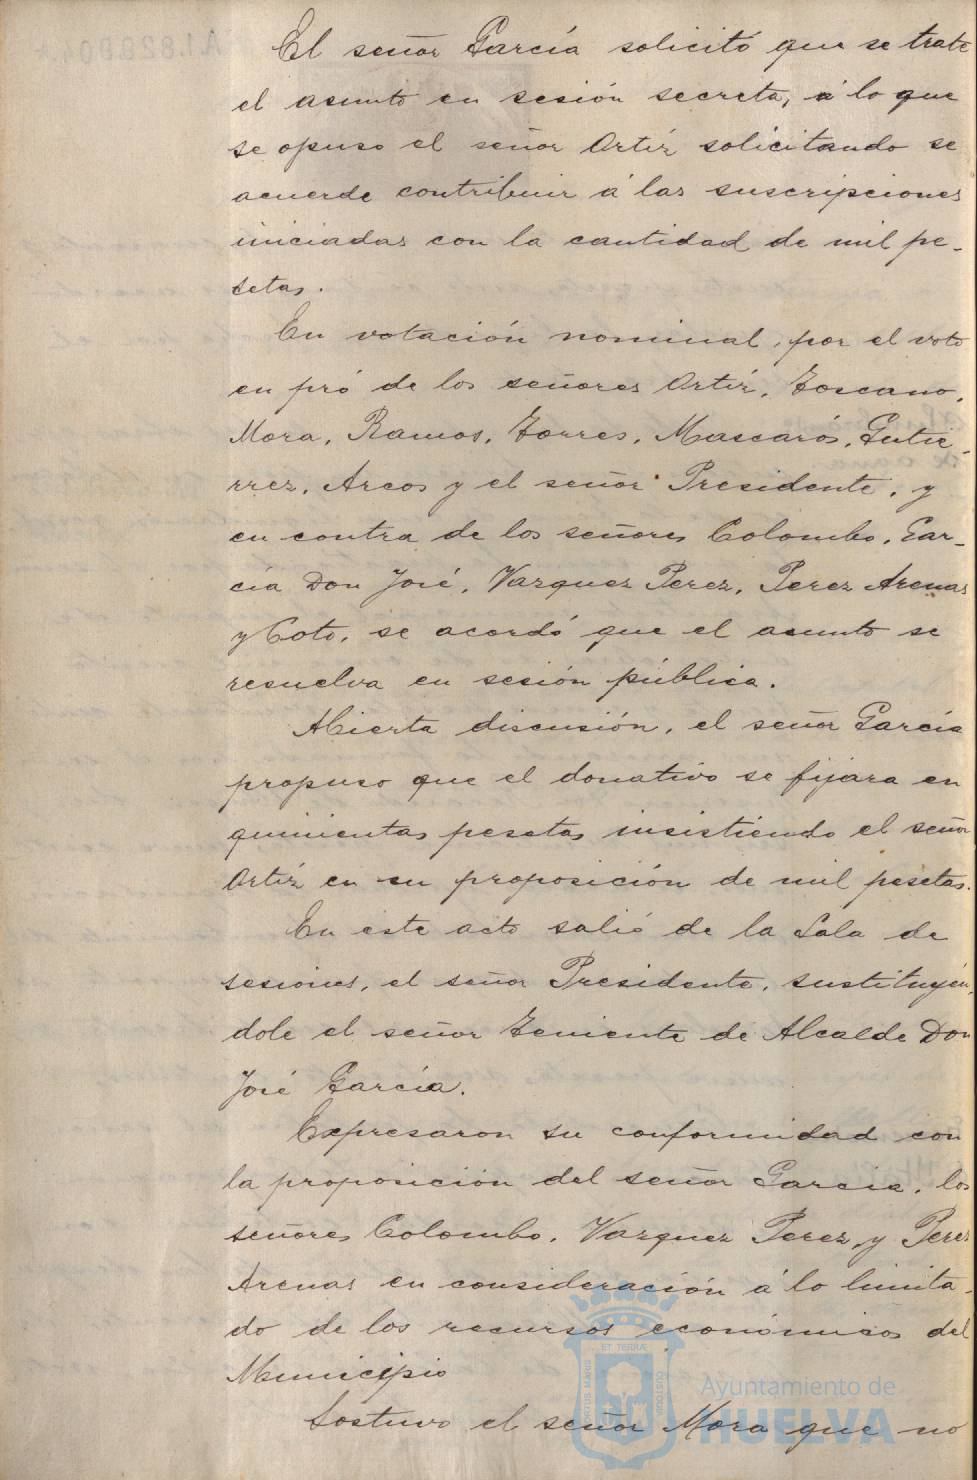 El señor García solicitó que se trate
el asunto en sesión secreta, á lo que
se opuso el señor Ortíz solicitando se
acuerde contribuir á las suscripciones
iniciadas con la cantidad de mil pe-
setas.
En votación nominal, por el voto
en pró de los señores Ortíz, Toscano,
Mora, Ramos, Torres, Mascarós, Gutie-
rrez, Arcos y el señor Presidente, y
en contra de los señores Colombo, Gar-
cía Don José, Vazquez Perez, Perez Arenas
y Coto, se acordó que el asunto se
resuelva en sesión pública.
Abierta discusión, el señor García
propuso que el donativo se fijara en
quinientas pesetas insistiendo el señor
Ortíz en su proposición de mil pesetas.
En este acto salió de la Sala de
sesiones, el señor Presidente, sustituyén-
dole el señor Teniente de Alcalde Don
José García.
Expresaron su conformidad con
la proposición del señor García, los
señores Colombo, Vazquez Perez, y Perez
Arenas en consideración á lo limita-
do de los recursos económicos del
Municipio
Sostuvo el señor Mora que no
ET TERRÆ
PORTUS MARIS
CUSTODIA
Ayuntamiento de
HUELVA